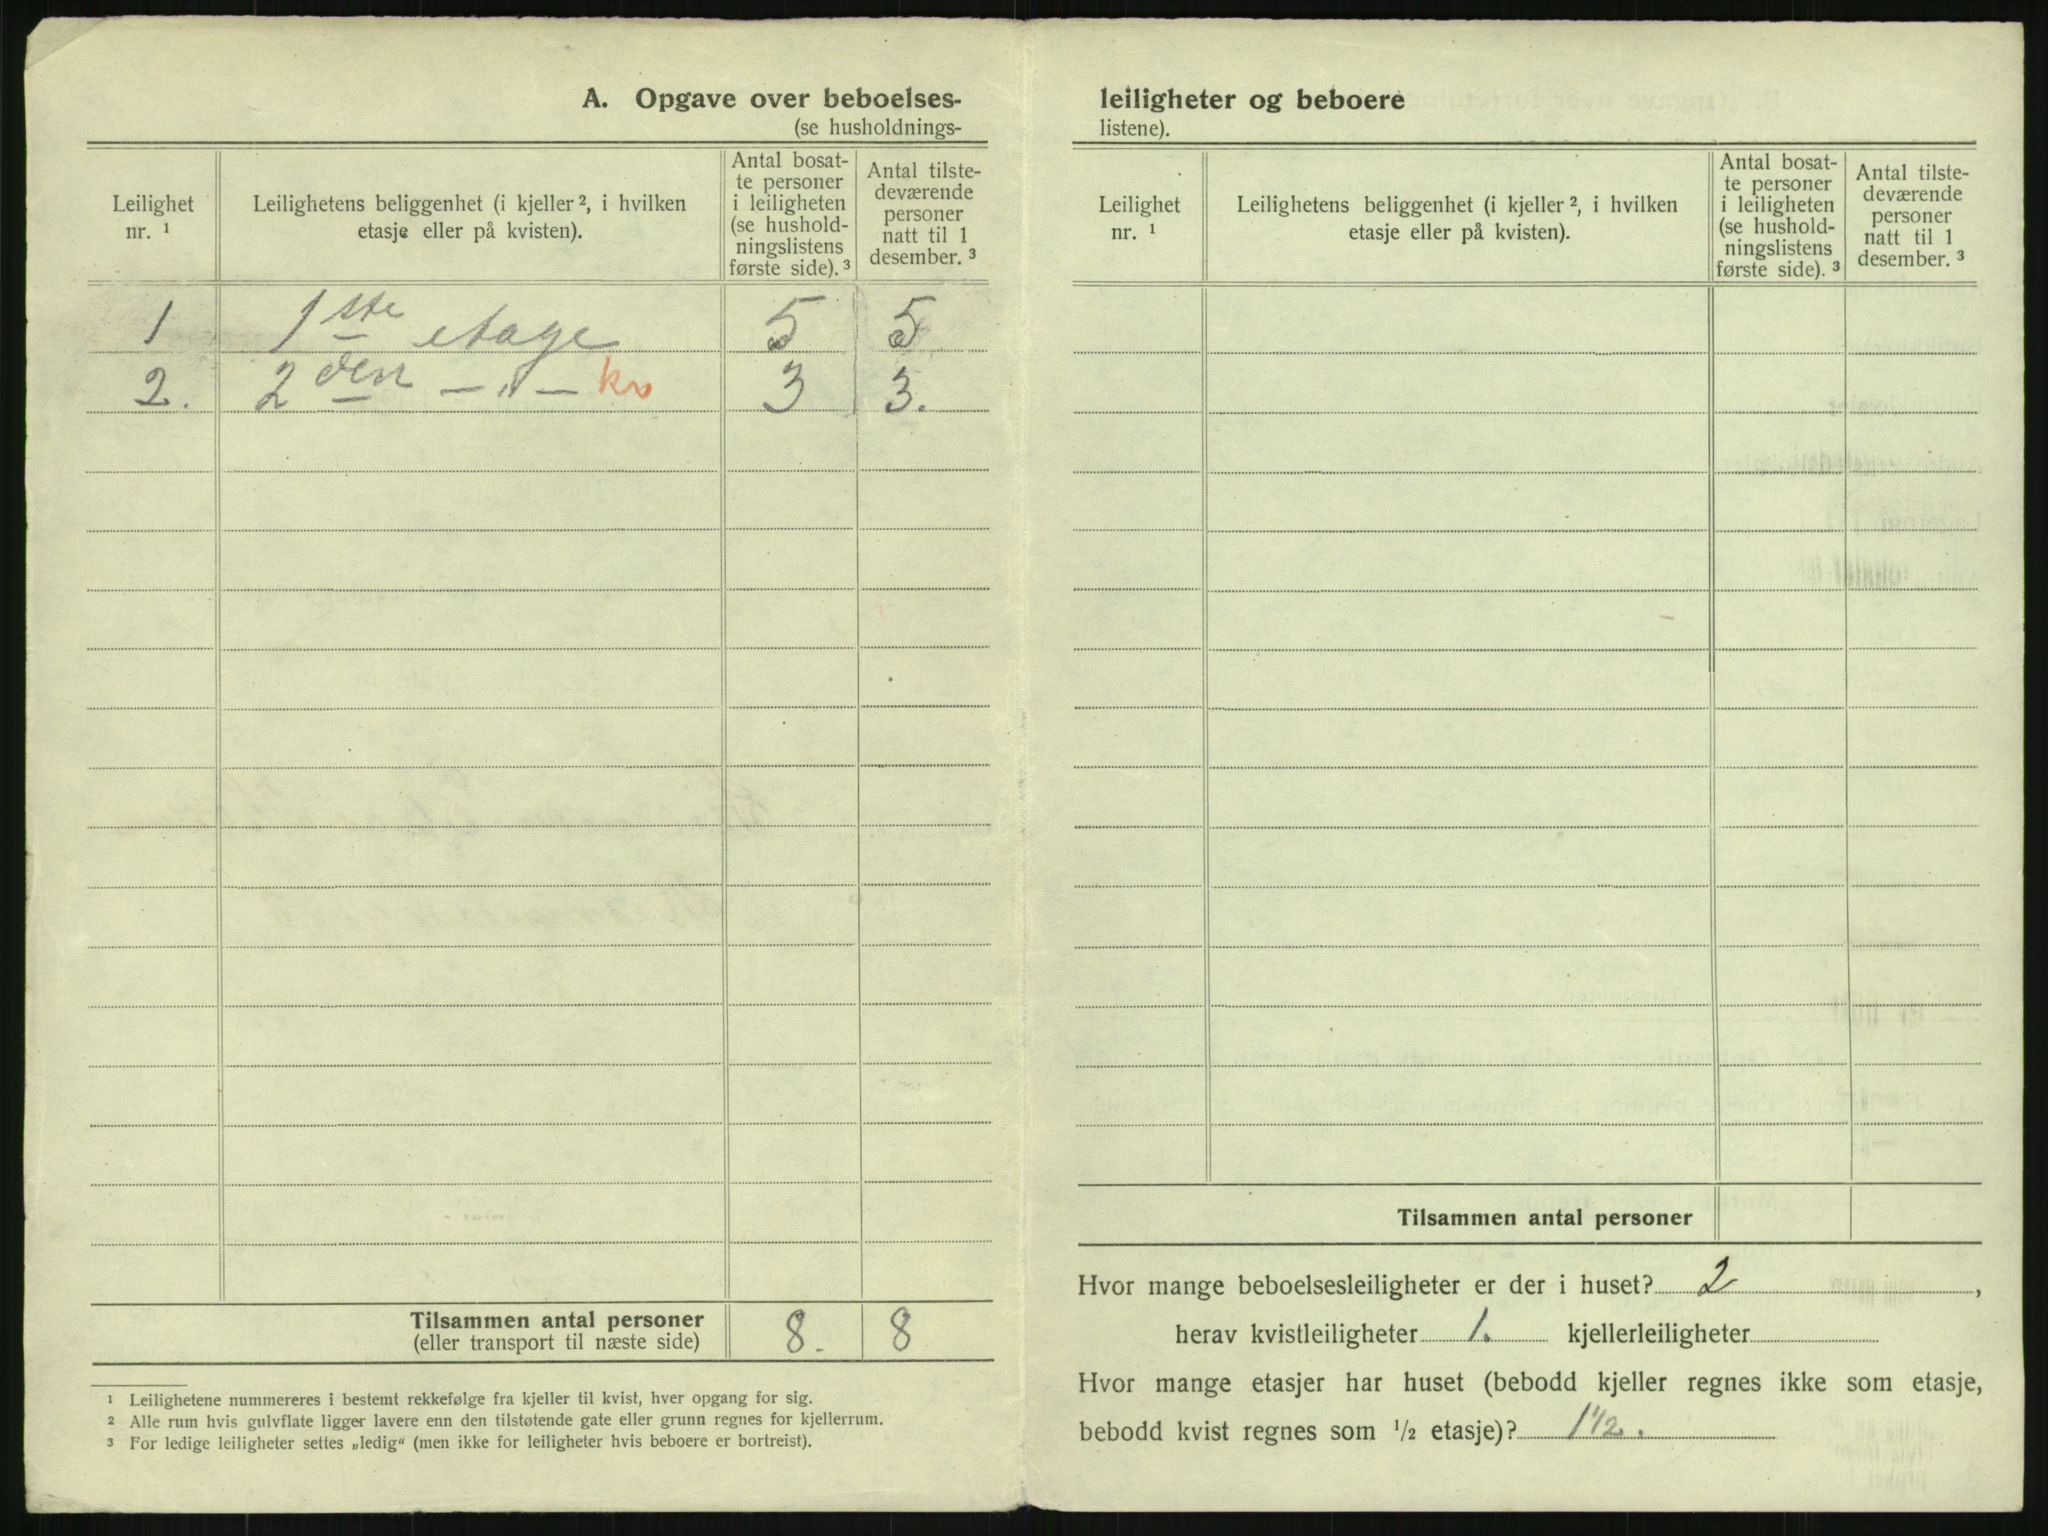 A. Opgave over beboelses-
(se husholdnings-
Leilighet
nr. ¹
Leilighetens beliggenhet (i kjeller ², i hvilken
etasje eller på kvisten).
Antal bosat-
te personer
i leiligheten
(se hushold-
ningslistens
første side). ³
Antal tilste-
deværende
personer
natt til 1
desember. ³
1 1ste etage 5 5
2. 2den — „ — kv 3 3.
Tilsammen antal personer 8. 8
(eller transport til næste side)
¹ Leilighetene nummereres i bestemt rekkefølge fra kjeller til kvist, hver opgang for sig.
² Alle rum hvis gulvflate ligger lavere enn den tilstøtende gate eller grunn regnes for kjellerrum.
³ For ledige leiligheter settes „ledig“ (men ikke for leiligheter hvis beboere er bortreist).
leiligheter og beboere
listene).
Leilighet
nr. ¹
Leilighetens beliggenhet (i kjeller ², i hvilken
etasje eller på kvisten).
Antal bosat-
te personer
i leiligheten
(se hushold-
ningslistens
første side). ³
Antal tilste-
deværende
personer
natt til 1
desember. ³
Tilsammen antal personer
Hvor mange beboelsesleiligheter er der i huset? 2 ,
herav kvistleiligheter 1. kjellerleiligheter
Hvor mange etasjer har huset (bebodd kjeller regnes ikke som etasje,
bebodd kvist regnes som ½ etasje)? 1 1/2.